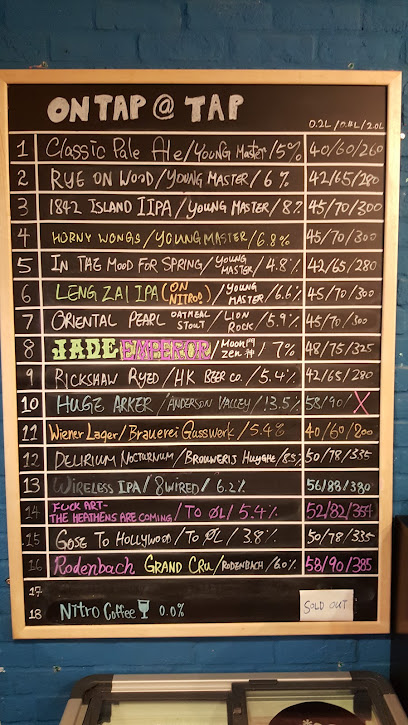 ON TAP @ TAP
0.2L / 0.4L / 2.0L
1 Classic Pale Ale / YOUNG MASTER / 5% 40/60/260
2 RYE ON WOOD / YOUNG MASTER / 6% 42/65/280
3 1842 ISLAND IIPA / YOUNG MASTER / 8% 45/70/300
4 HORNY WONGS / YOUNG MASTER / 6.8% 45/70/300
5 IN THE MOOD FOR SPRING / YOUNG MASTER / 4.8% 42/65/280
6 LENG ZAI IPA (ON NITRO!) / YOUNG MASTER / 6.6% 45/70/300
7 ORIENTAL PEARL OATMEAL STOUT / LION ROCK / 5.9% 45/70/300
8 JADE EMPEROR / MOON門 ZEN神 / 7% 48/75/325
9 RICKSHAW RYED / HK BEER CO. / 5.4% 42/65/280
10 HUGE ARKER / ANDERSON VALLEY / 13.5% 58/90/X
11 Wiener Lager / Brauerei Gusswerk / 5.4% 40/60/
12 DELIRIUM NOCTURNUM / BROUWERIJ HUYGHE / 8.5% 50/78/335
13 WIRELESS IPA / 8WIRED / 6.2% 56/88/380
14 FUCK ART - THE HEATHENS ARE COMING / TO ØL / 5.4% 52/82/354
15 GOSE TO HOLLYWOOD / TO ØL / 3.8% 50/78/335
16 Rodenbach GRAND CRU / RODENBACH / 6.0% 58/90/385
17
18 NITRO COFFEE 0.0% SOLD OUT